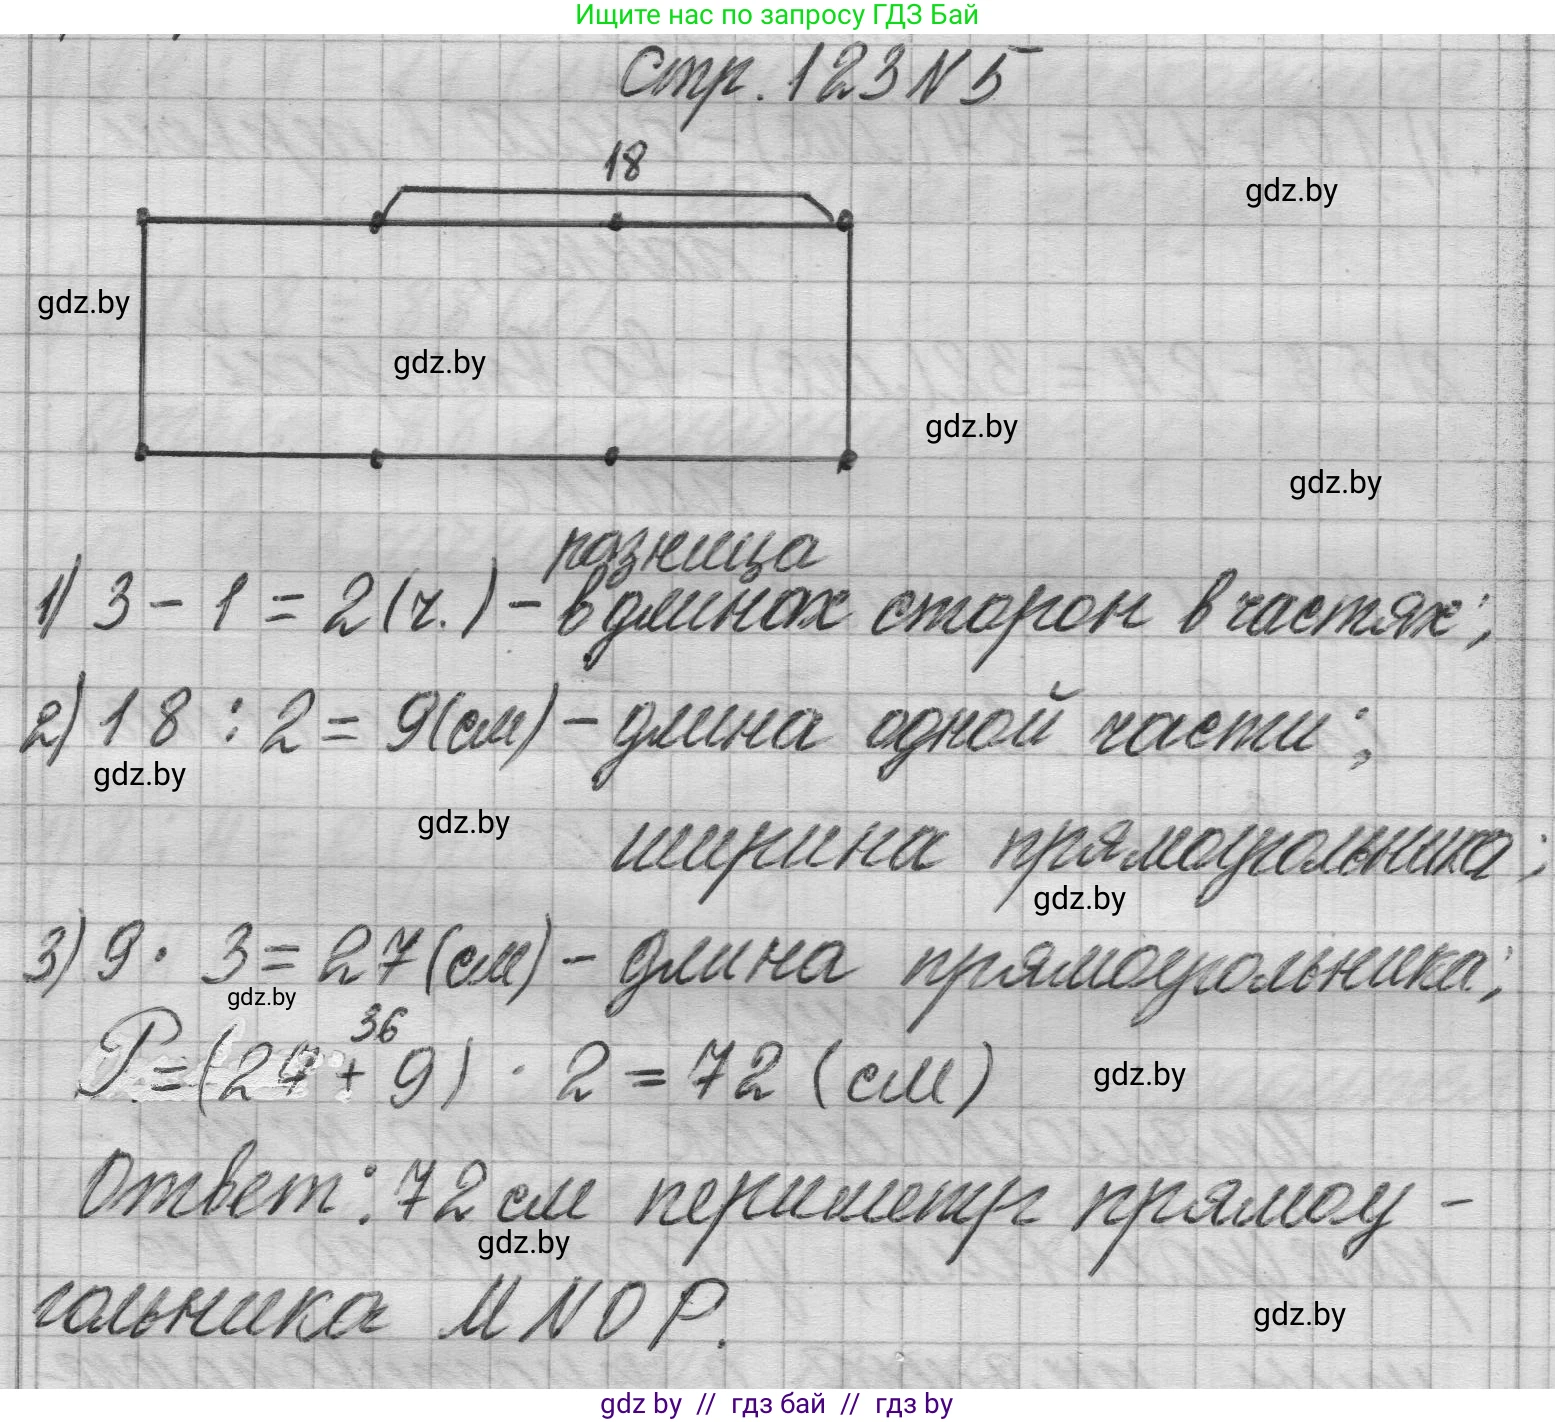 Ищите нас по запросу ГДЗ Бай
Стр. 123 N 5
18
gdz.by
gdz.by
gdz.by
gdz.by
gdz.by
разница
1) 3 - 1 = 2 (ч.) - в длинах сторон в частях;
2) 18 : 2 = 9 (см) - длина одной части;
gdz.by
gdz.by
ширина прямоугольника;
gdz.by
3) 9 · 3 = 27 (см) - длина прямоугольника;
gdz.by
36
P = (27 + 9) · 2 = 72 (см)
gdz.by
Ответ: 72 см периметр прямоу -
gdz.by
гольника MNOP.
gdz.by
gdz by // гдз бай // гдз by